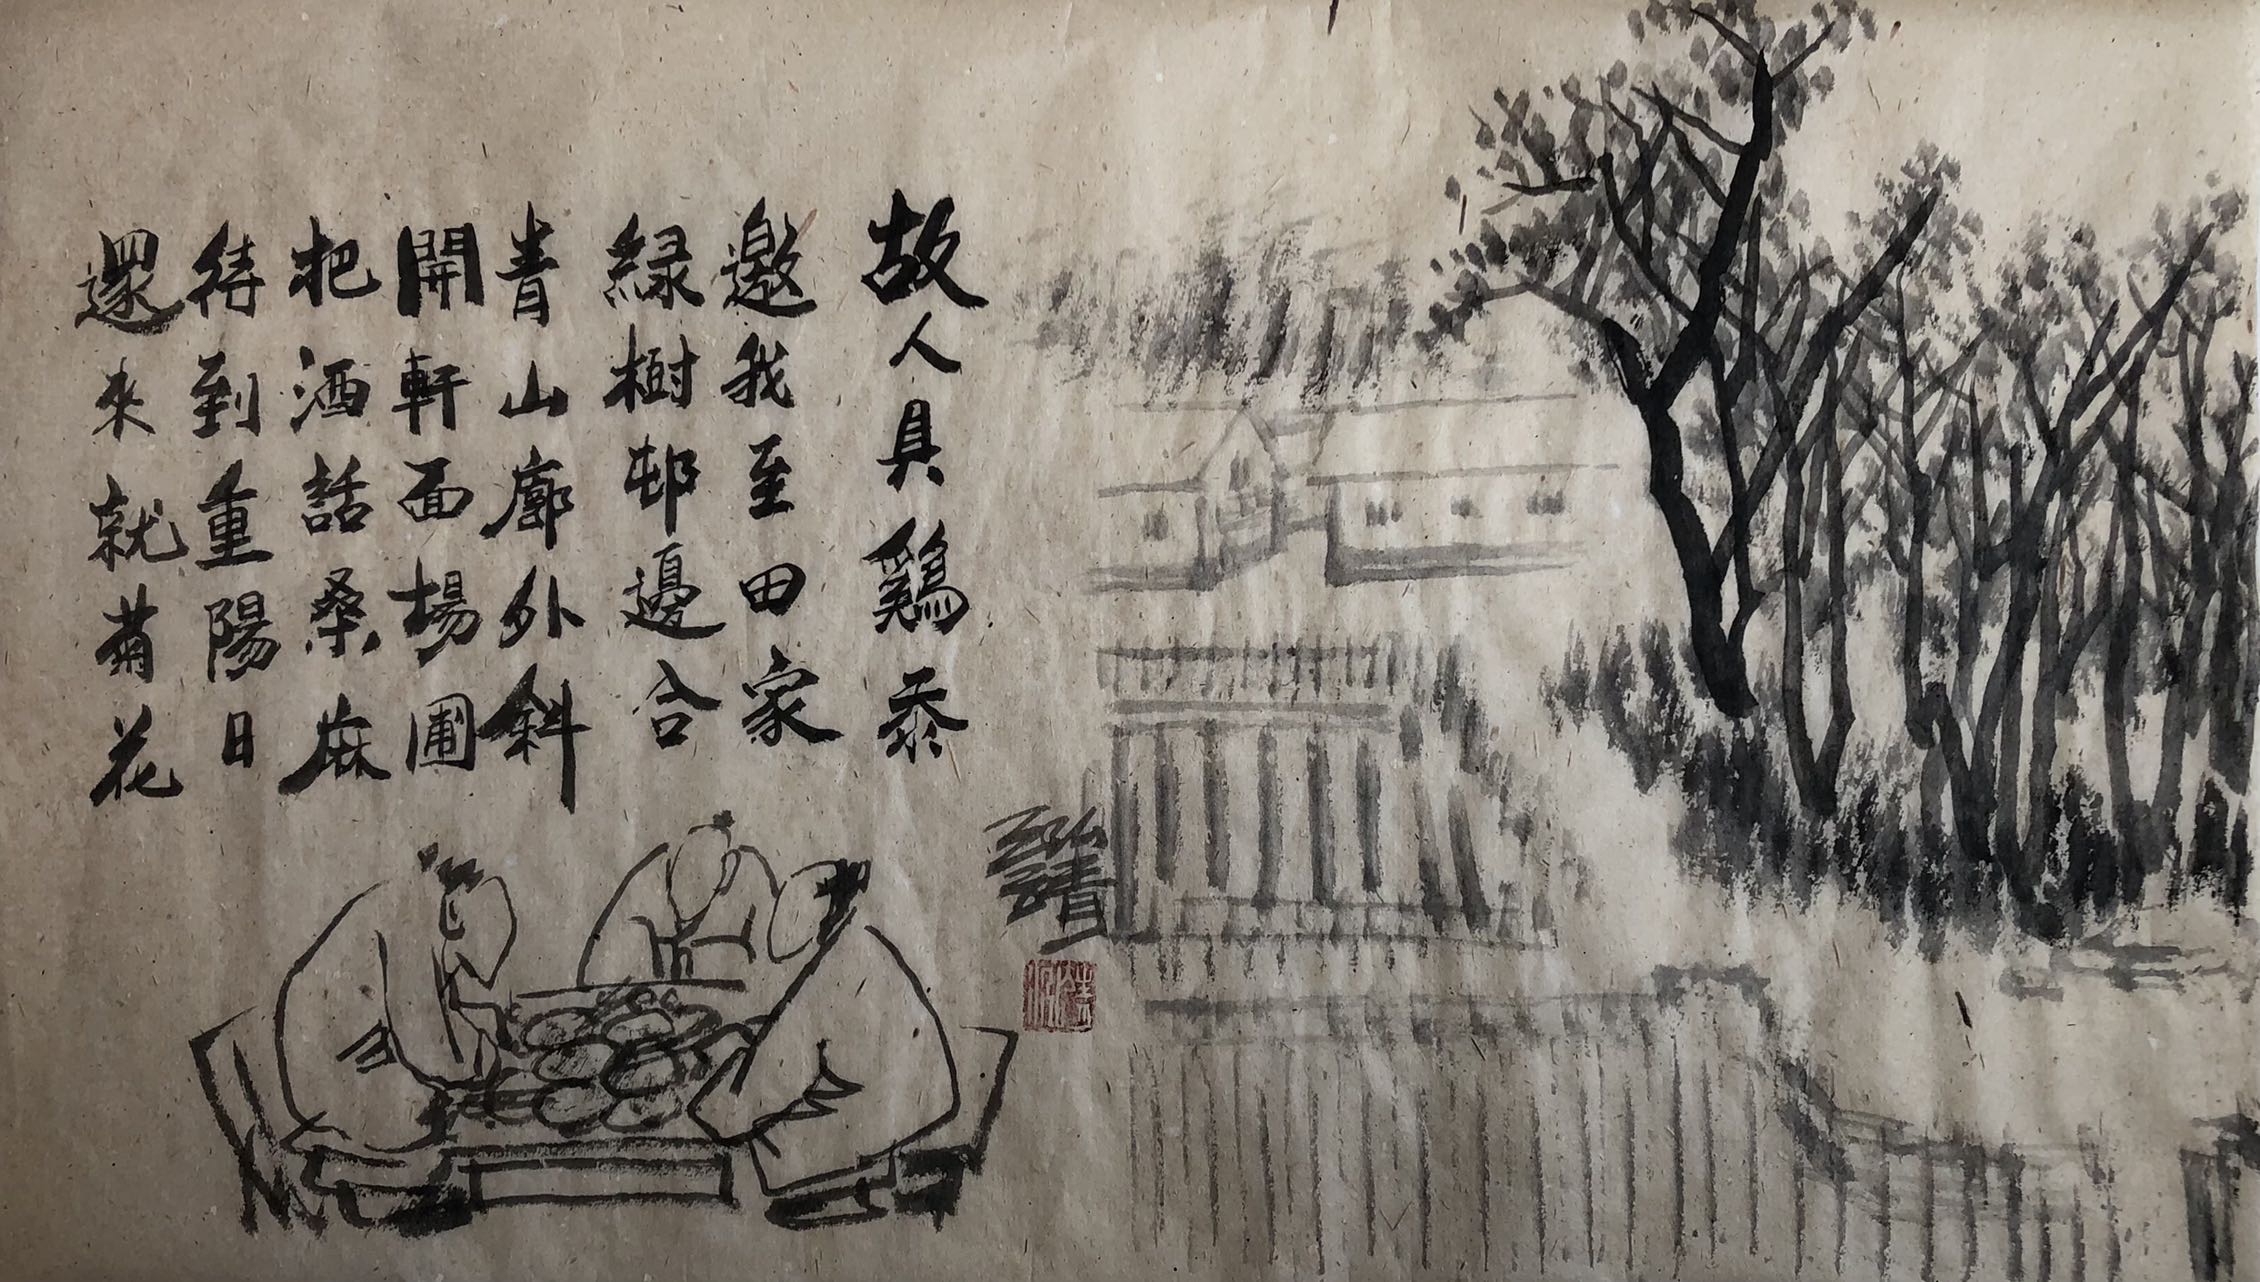 故人具鷄黍
邀我至田家
緑樹邨邊合
青山廓外斜
開軒面場圃
把酒話桑麻
待到重陽日
還來就菊花